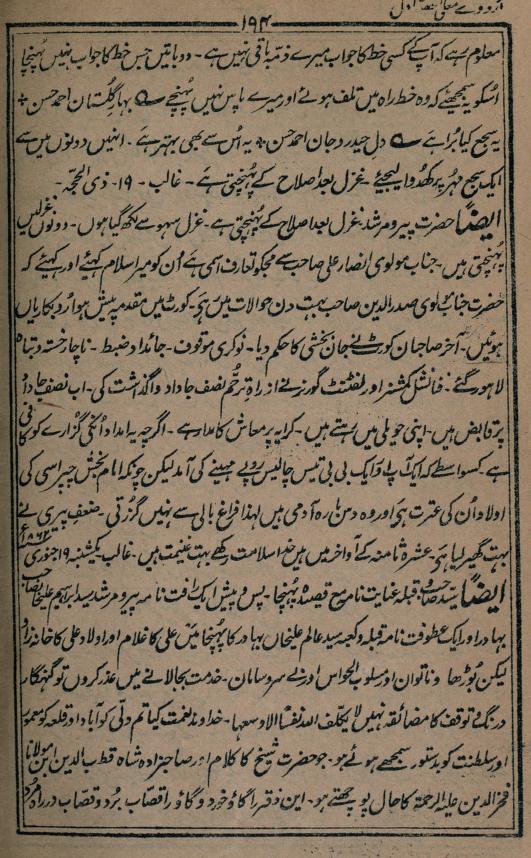 اردوے معلی حصہ اول
۱۹۴
معلوم رہے کہ آپ کے کسی خط کا جواب میرے ذمہ باقی نہیں ہے۔ دو باتیں جس خط کا جواب نہیں پہنچا
اسکو یہ سمجھئے کہ وہ خط راہ میں تلف ہوئے اور میرے پاس نہیں پہنچے ؎ بہار گلستان احمد حسن
یہ سجع کیا بُرا ہے ؎ دل حیدر و جان احمد حسن یہ اُس سے بھی بہتر ہے۔ انہیں دونوں میں سے
ایک سجع مُہر پر کھُدوا لیجئے۔ غزل بعد اصلاح کے پہنچتی ہے۔ غالب۔ ۱۹۔ ذی الحجہ۔
ایضاً حضرت پیرو مرشد غزل بعد اصلاح کے پہنچتی ہے۔ غزل سہو سے لکھ گیا ہوں۔ دونوں غزلیں
پہنچتی ہیں۔ جناب مولوی انصار علی صاحب سے مجکو تعارف اسمی ہے اُن کو میرا سلام کہئے اور کہئے کہ
حضرت جناب مولوی صدر الدین صاحب بہت دن حوالات میں رہے۔ کورٹ میں مقدمہ پیش ہوا روبکاریاں
ہوئیں۔ آخر صاحبان کورٹ نے جان بخشی کا حکم دیا۔ نوکری موقوف۔ جائداد ضبط۔ ناچار خستہ و تباہ
لاہور گئے۔ فنانشل کمشنر اور لفٹنٹ گورنر نے از راہ ترحّم نصف جاداد واگذاشت کی۔ اب نصف جاداد
پر قابض ہیں۔ اپنی حویلی میں رہتے ہیں۔ کرایہ پر معاش کا مدار ہے۔ اگرچہ یہ امداد اُنکی گزارے کو کافی
ہے کسواسطے کہ ایک آپ اور ایک بی بی تیس چالیس روپے مہینے کی آمد لیکن چونکہ امام بخش چپراسی کی
اولاد اُن کی عترت ہے اور وہ دس بارہ آدمی ہیں لہذا فراغ بالی سے نہیں گزرتی۔ ضعف پیری نے
بہت گھیر لیا ہے۔ عشرۂ ثامنہ کے آواخر میں ہیں خدا سلامت رکھے بہت غنیمت ہیں۔ غالب یکشنبہ ۱۹ جنوری ۱۸۶۲ء
ایضاً سید صاحب و قبلہ عنایت نامہ مع قصیدہ پہنچا۔ پس و پیش ایک رافت نامہ پیرو مرشد سید ابراہیم علیخاں صاحب
بہادر اور ایک عطوفت نامہ قبلہ و کعبہ سید عالم علیخاں بہادر کا پہنچا میں علی کا غلام اور اولاد علی کا خانہ زاد
لیکن بُوڑھا و ناتوان اور مسلوب الحواس اور بے سروسامان۔ خدمت بجا لانے میں عذر کروں تو گنہگار
درنگ و توقف کا مضائقہ نہیں لا یکلف اللہ نفسًا الا وسعہا۔ خداوند نعمت کیا تم دلّی کو آباد اور قلعہ کو معمور
اور سلطنت کو بدستور سمجھے ہوئے ہو۔ جو حضرت شیخ کا کلام اور صاحبزادہ شاہ قطب الدین ابن مولانا
فخر الدین علیہ الرحمۃ کا حال پوچھتے ہو۔ این دفتر را گاؤ خورد و گاؤ را قصّاب بُرد و قصاب در راہ مُرد